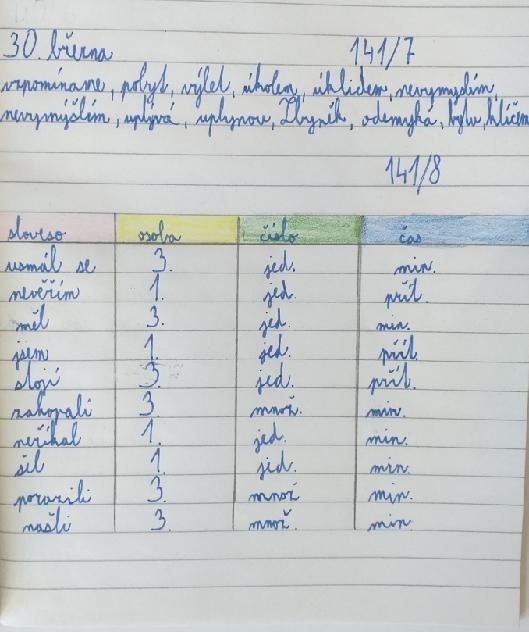 30. března 141/7
vzpomínáme, pobyt, výlet, úkolem, úklidem, nevymyslím,
nevymýšlím, uplývá, uplynou, Zbyněk, odemyká, bylu, klíčem
141/8
sloveso osoba číslo čas
usmál se 3. jed. min.
nevěřím 1. jed. přít.
měl 3. jed. min.
jsem 1. jed. přít.
stojí 3. jed. přít.
zakopali 3. množ. min.
neříkal 1. jed. min.
šil 1. jed. min.
porazili 3. množ min.
našli 3. množ. min